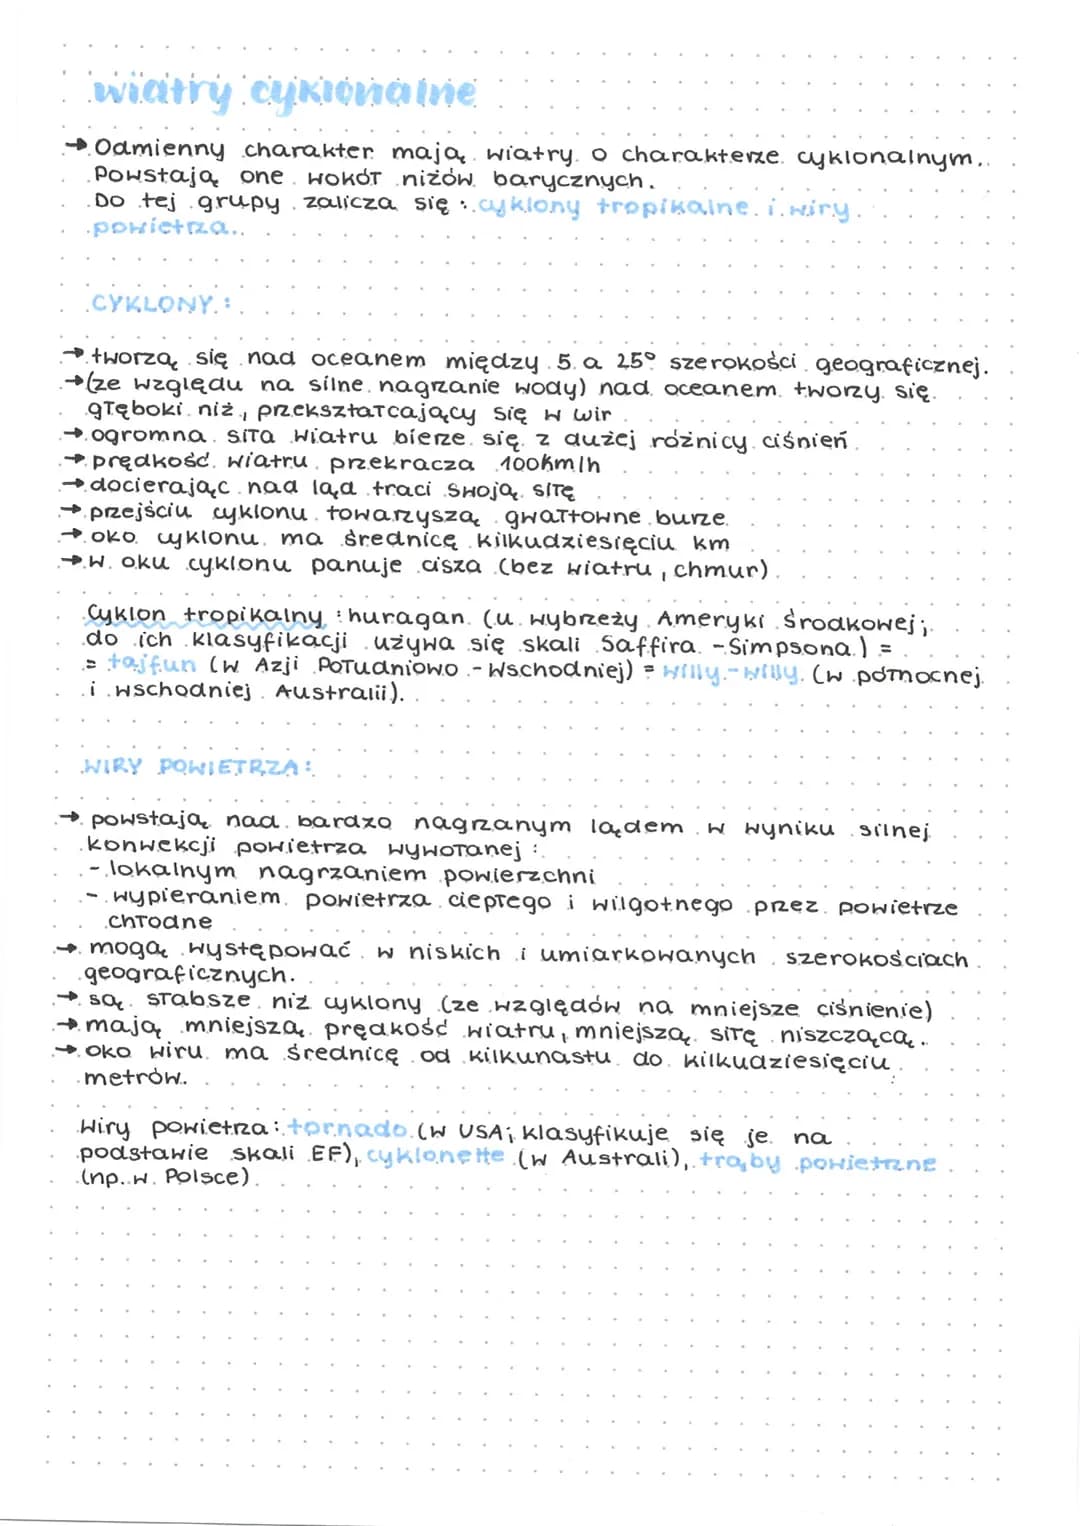 wiatry cyklonalne
→ Odmienny charakter mają wiatry o charakterze cyklonalnym.
Powstają one wokół niżów barycznych.
Do tej grupy zalicza się : cyklony tropikalne i wiry
powietrza.
CYKLONY :
→ tworzą się nad oceanem między 5 a 25° szerokości geograficznej.
→ (ze względu na silne nagrzanie wody) nad oceanem tworzy się
głęboki niż, przekształcający się w wir
→ ogromna siła wiatru bierze się z dużej różnicy ciśnień
→ prędkość wiatru przekracza 100km/h
→ docierając nad ląd traci swoją siłę
→ przejściu cyklonu towarzyszą gwałtowne burze
→ oko cyklonu ma średnicę kilkudziesięciu km
→ w oku cyklonu panuje cisza (bez wiatru, chmur)
Cyklon tropikalny : huragan (u wybrzeży Ameryki Środkowej;
do ich klasyfikacji używa się skali Saffira - Simpsona) =
= tajfun (w Azji Południowo - Wschodniej) = willy - willy (w północnej
i wschodniej Australii).
WIRY POWIETRZA :
→ powstają nad bardzo nagrzanym lądem w wyniku silnej
konwekcji powietrza wywołanej :
- lokalnym nagrzaniem powierzchni
- wypieraniem powietrza ciepłego i wilgotnego przez powietrze
chłodne
→ mogą występować w niskich i umiarkowanych szerokościach
geograficznych.
→ są słabsze niż cyklony (ze względów na mniejsze ciśnienie)
→ mają mniejszą prędkość wiatru, mniejszą siłę niszczącą.
→ oko wiru ma średnicę od kilkunastu do kilkudziesięciu
metrów.
Wiry powietrza : tornado (w USA; klasyfikuje się je na
podstawie skali EF), cyklonette (w Australi), trąby powietrzne
(np. w Polsce)